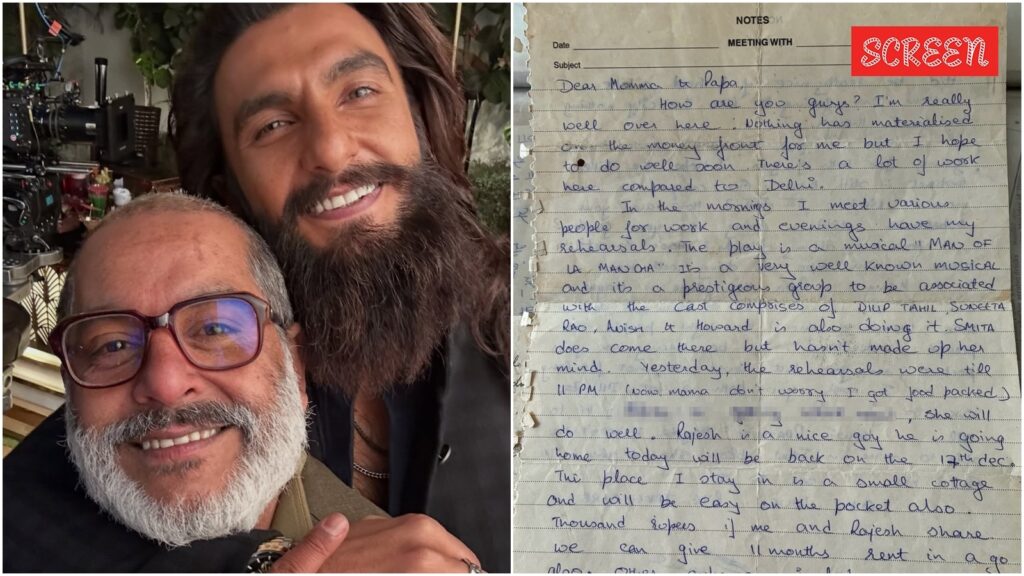 SCREEN
NOTES
Date MEETING WITH
Subject
Dear Momma & Papa,
How are you guys? I'm really
well over here. Nothing has materialised
on the money front for me but I hope
to do well soon There's a lot of work
here compared to Delhi.
In the mornings I meet various
people for work and evenings have my
rehearsals. The play is a musical "MAN OF
LA MANCHA" It's a very well known musical
and it's a prestigeous group to be associated
with the cast comprises of DILIP TAHIL, SUNEETA
RAO. Avish & Howard is also doing it. SMITA
does come there but hasn't made up her
mind. Yesterday, the rehearsals were till
11 PM (wow mama don't worry I got food packed)
, she will
do well. Rajesh is a nice guy he is going
home today will be back on the 17th dec.
The place I stay in is a small cottage
and will be easy on the pocket also.
Thousand rupees if me and Rajesh share
we can give 11 months rent in a go
also.